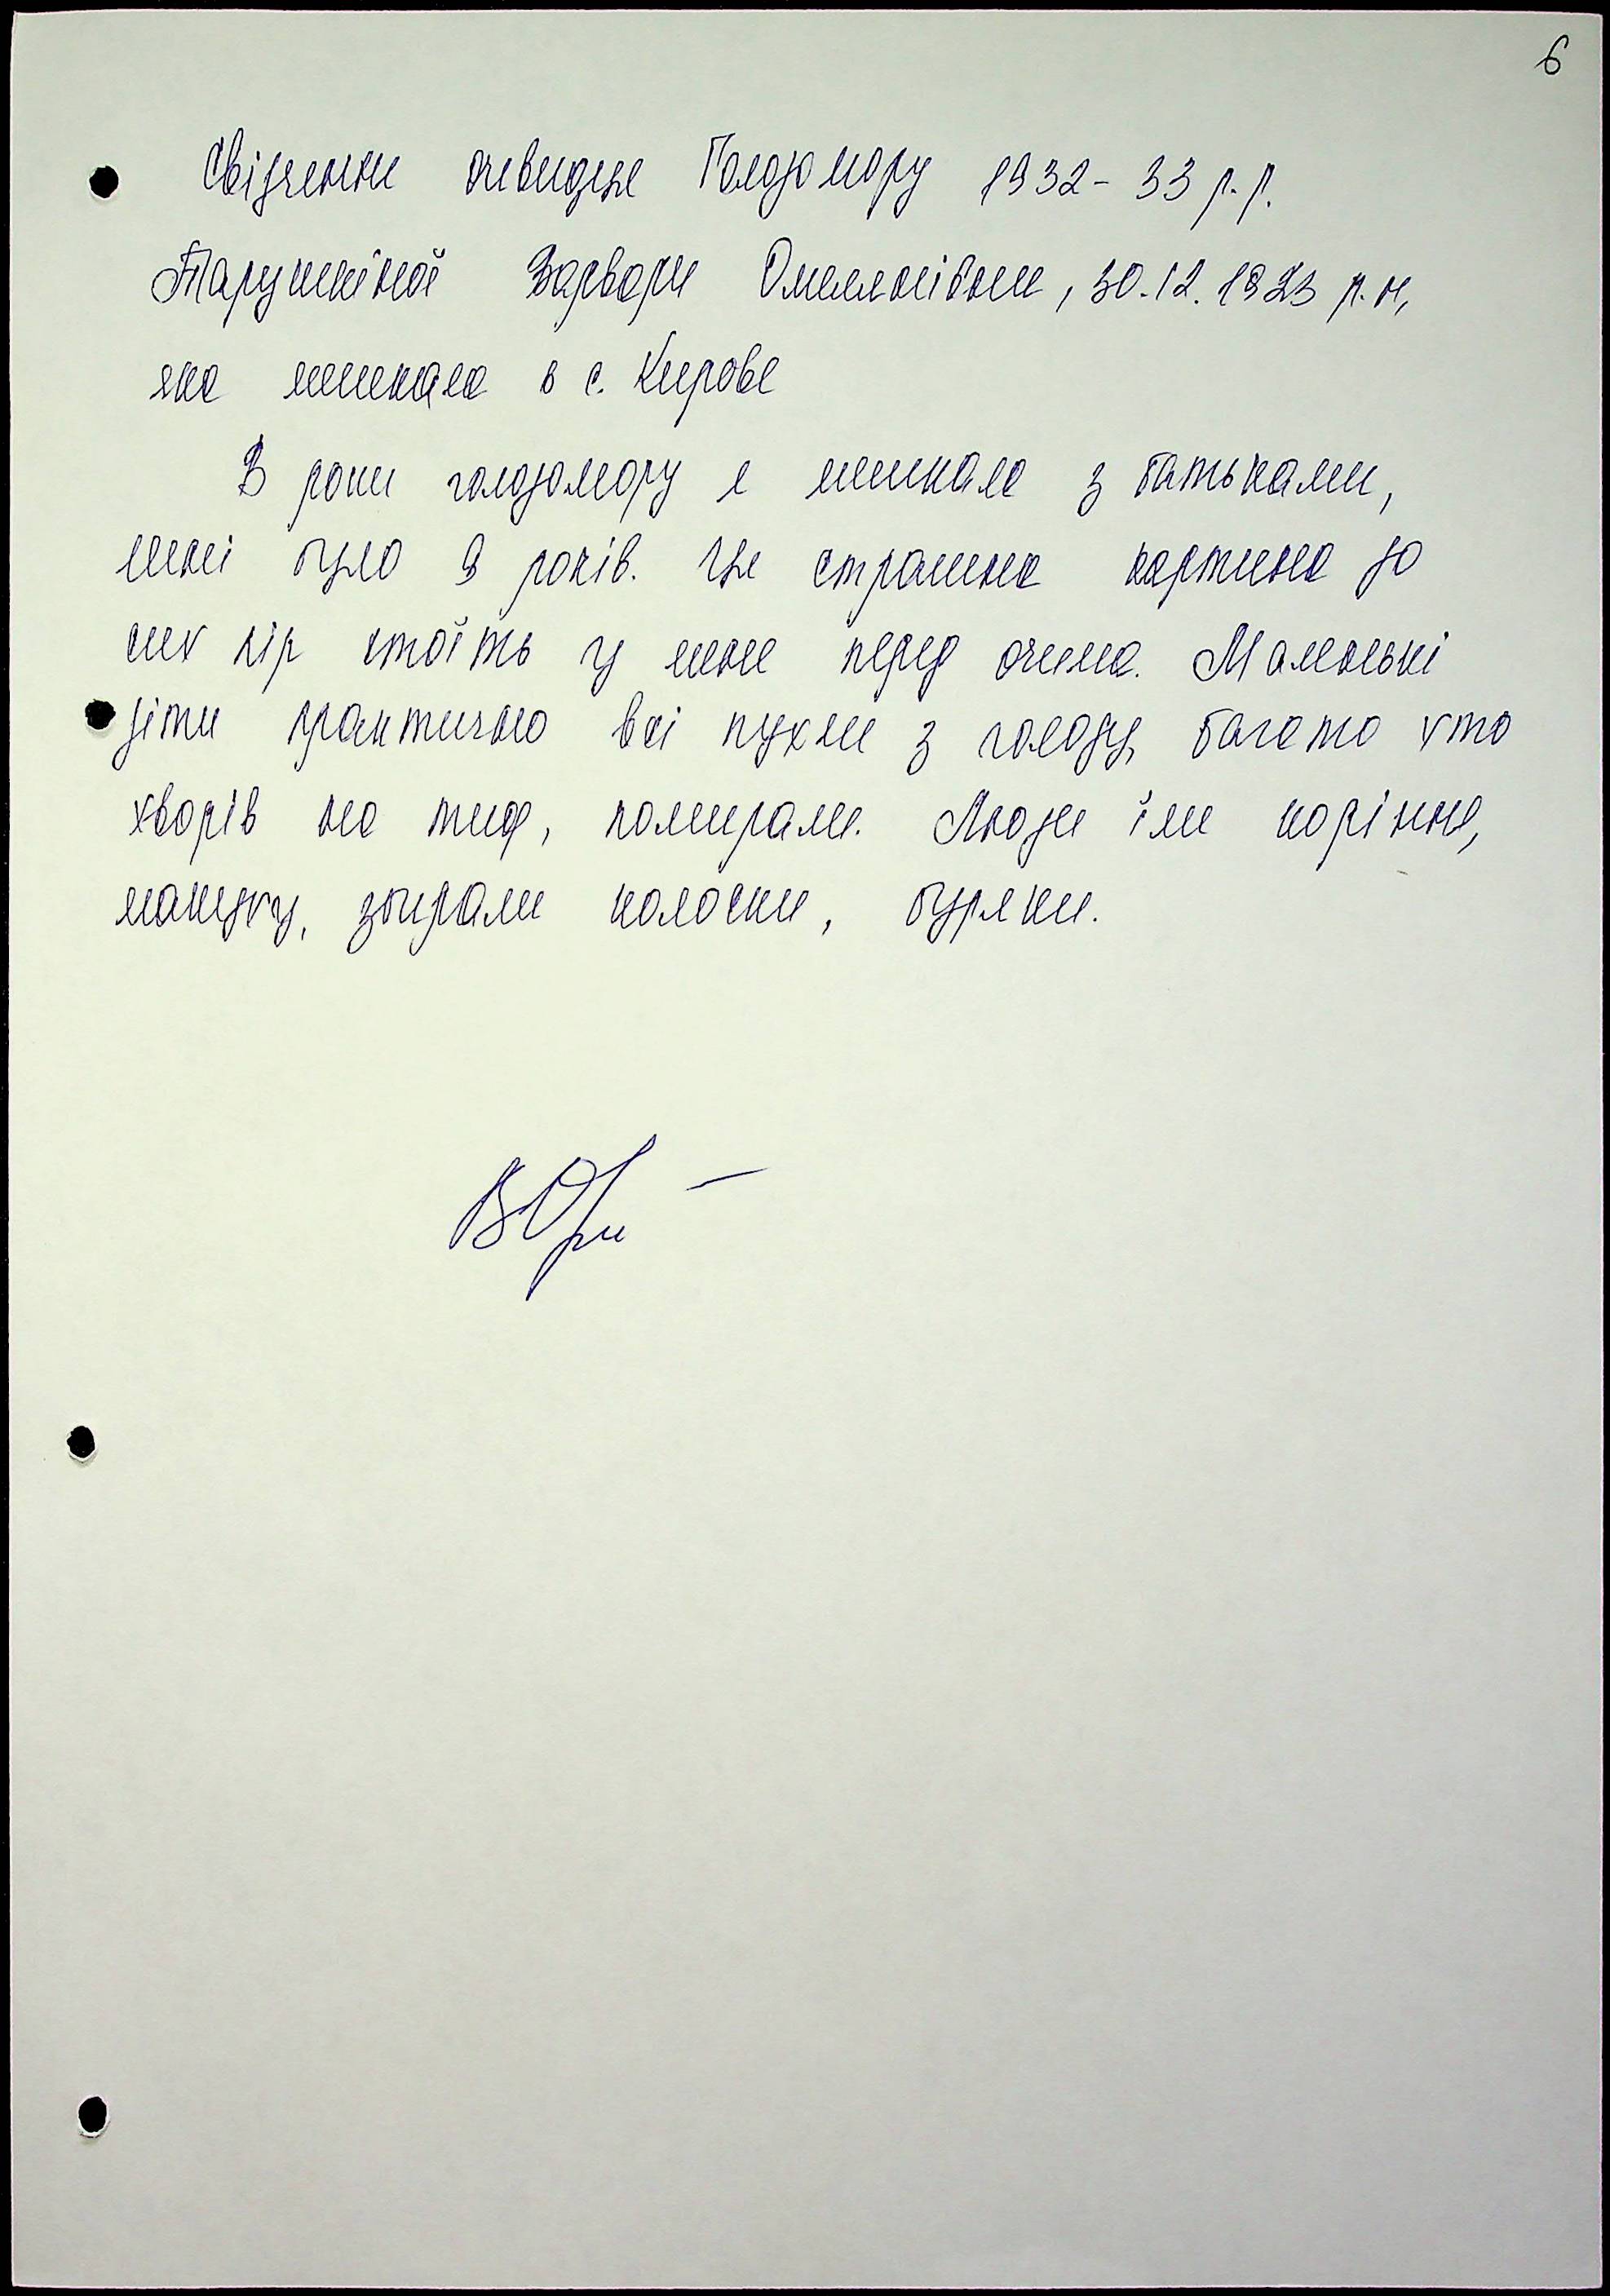 6
Свідчення очевидця Голодомору 1932-33 р.р.
Тарушкіної Варвари Омелянівни, 30.12.1923 р.н,
яка мешкала в с. Кирове
В роки голодомору я мешкала з батьками,
мені було 9 років. Ця страшна картина до
сих пір стоїть у мене перед очима. Маленькі
діти практично всі пухли з голоду, багато хто
хворів на тиф, помирали. Люди їли коріння,
макуху, збирали колоски, буряки.